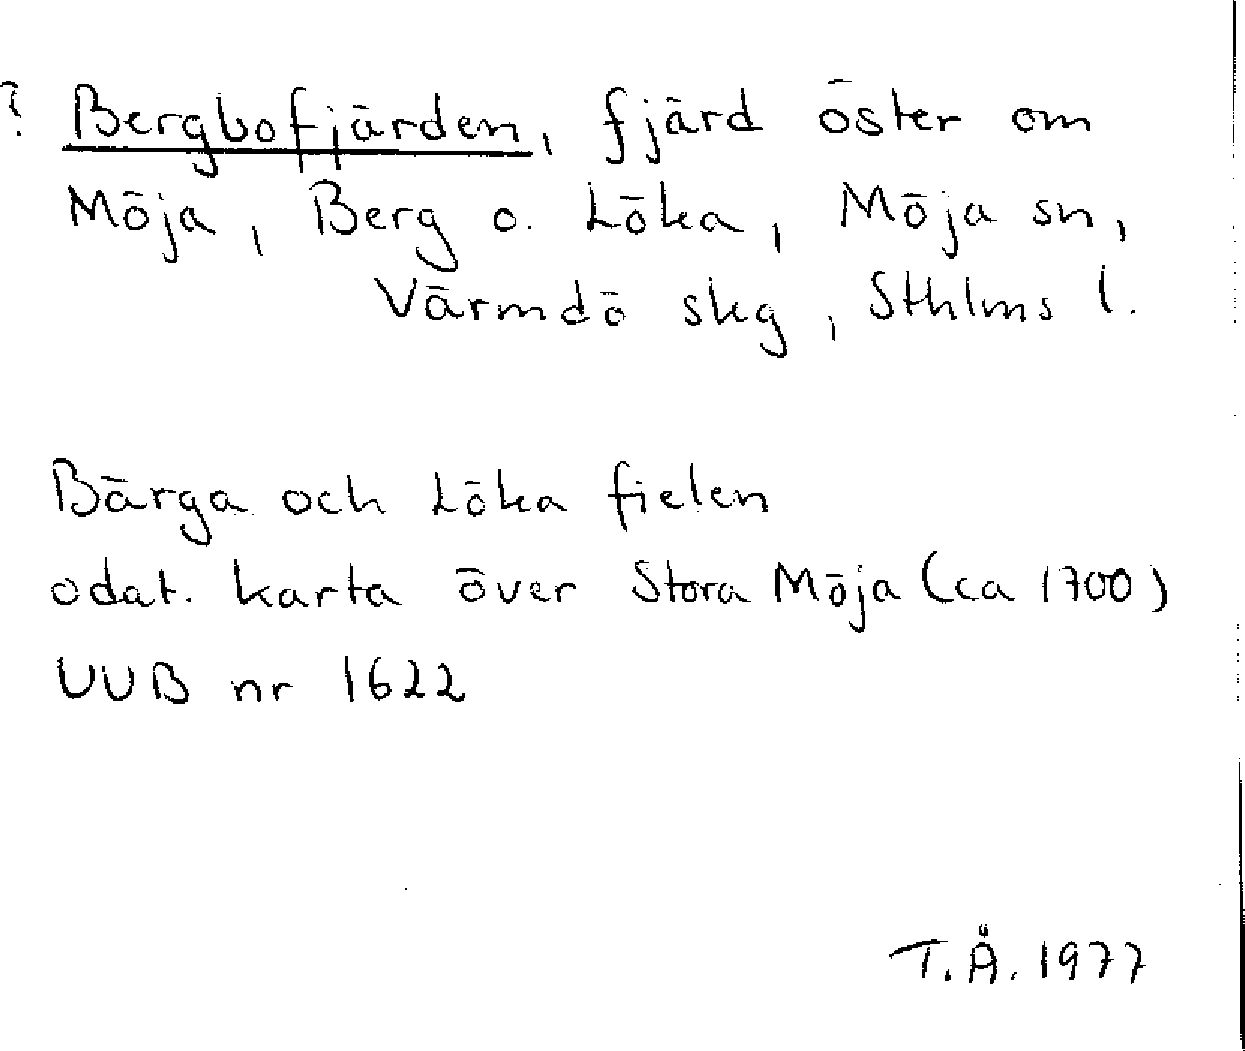 ? Bergbofjärden, fjärd öster om
Möja, Berg o. Löka, Möja sn,
Värmdö skg, Sthlms l.
Bärga och Löka fielen
odat. karta över Stora Möja (ca 1700)
UUB nr 1622
T.Å. 1977